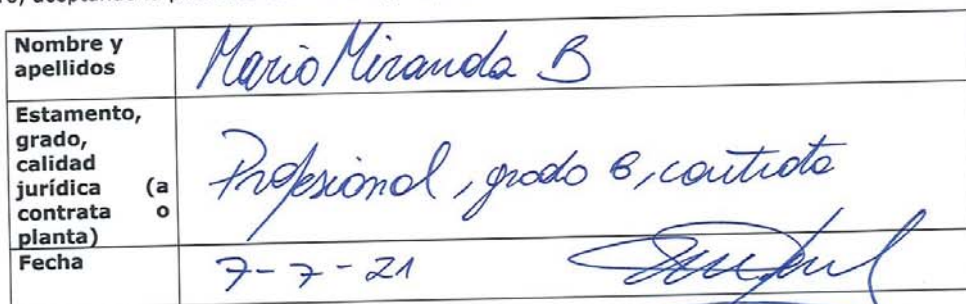 Nombre y
apellidos
Mario Miranda B
Estamento,
grado,
calidad
jurídica (a
contrata o
planta)
Profesional, grado 6, contrata
Fecha
7-7-21